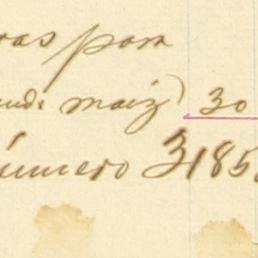 ras para
und. maiz) 30
número 3185